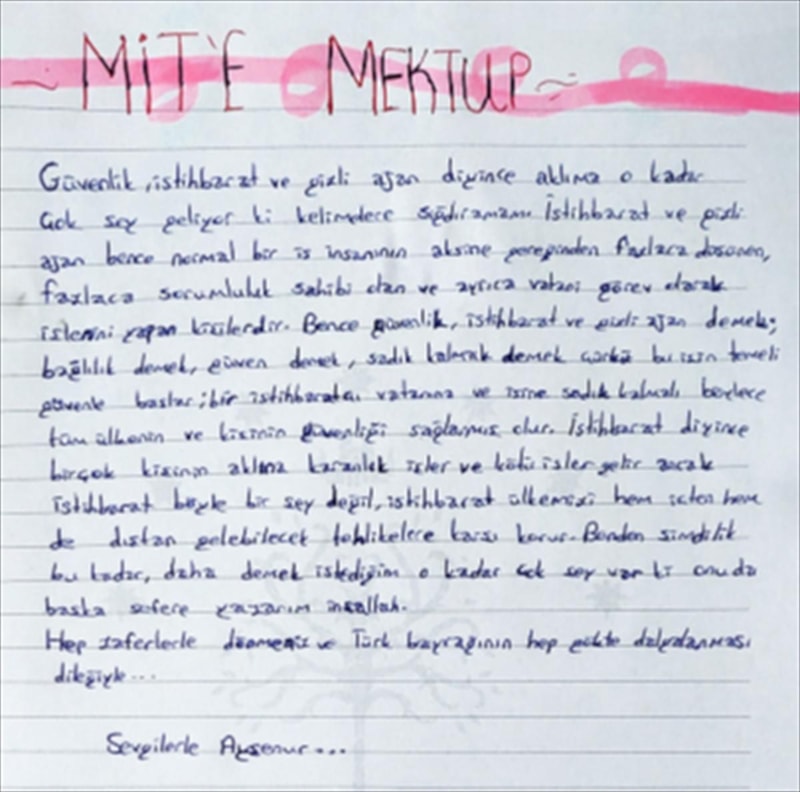 ~ MİT'E MEKTUP ~
Güvenlik, istihbarat ve gizli ajan diyince aklıma o kadar
çok şey geliyor ki kelimelere sığdıramam. İstihbarat ve gizli
ajan bence normal bir iş insanının aksine gereğinden fazlaca düşünen,
fazlaca sorumluluk sahibi olan ve ayrıca vatani görev olarak
işlerini yapan kişilerdir. Bence güvenlik, istihbarat ve gizli ajan demek;
bağlılık demek, güven demek, sadık kalmak demek çünkü bu işin temeli
güvenle başlar; bir istihbaratçı vatanına ve işine sadık kalmalı böylece
tüm ülkenin ve kişinin güvenliği sağlamış olur. İstihbarat diyince
birçok kişinin aklına karanlık işler ve kötü işler gelir ancak
istihbarat böyle bir şey değil, istihbarat ülkemizi hem içten hem
de dıştan gelebilecek tehlikelere karşı korur. Benden şimdilik
bu kadar, daha demek istediğim o kadar çok şey var ki onu da
başka sefere yazarım inşallah.
Hep zaferlerle dönmeniz ve Türk bayrağının hep gökte dalgalanması
dileğiyle...
Sevgilerle Ayşenur...